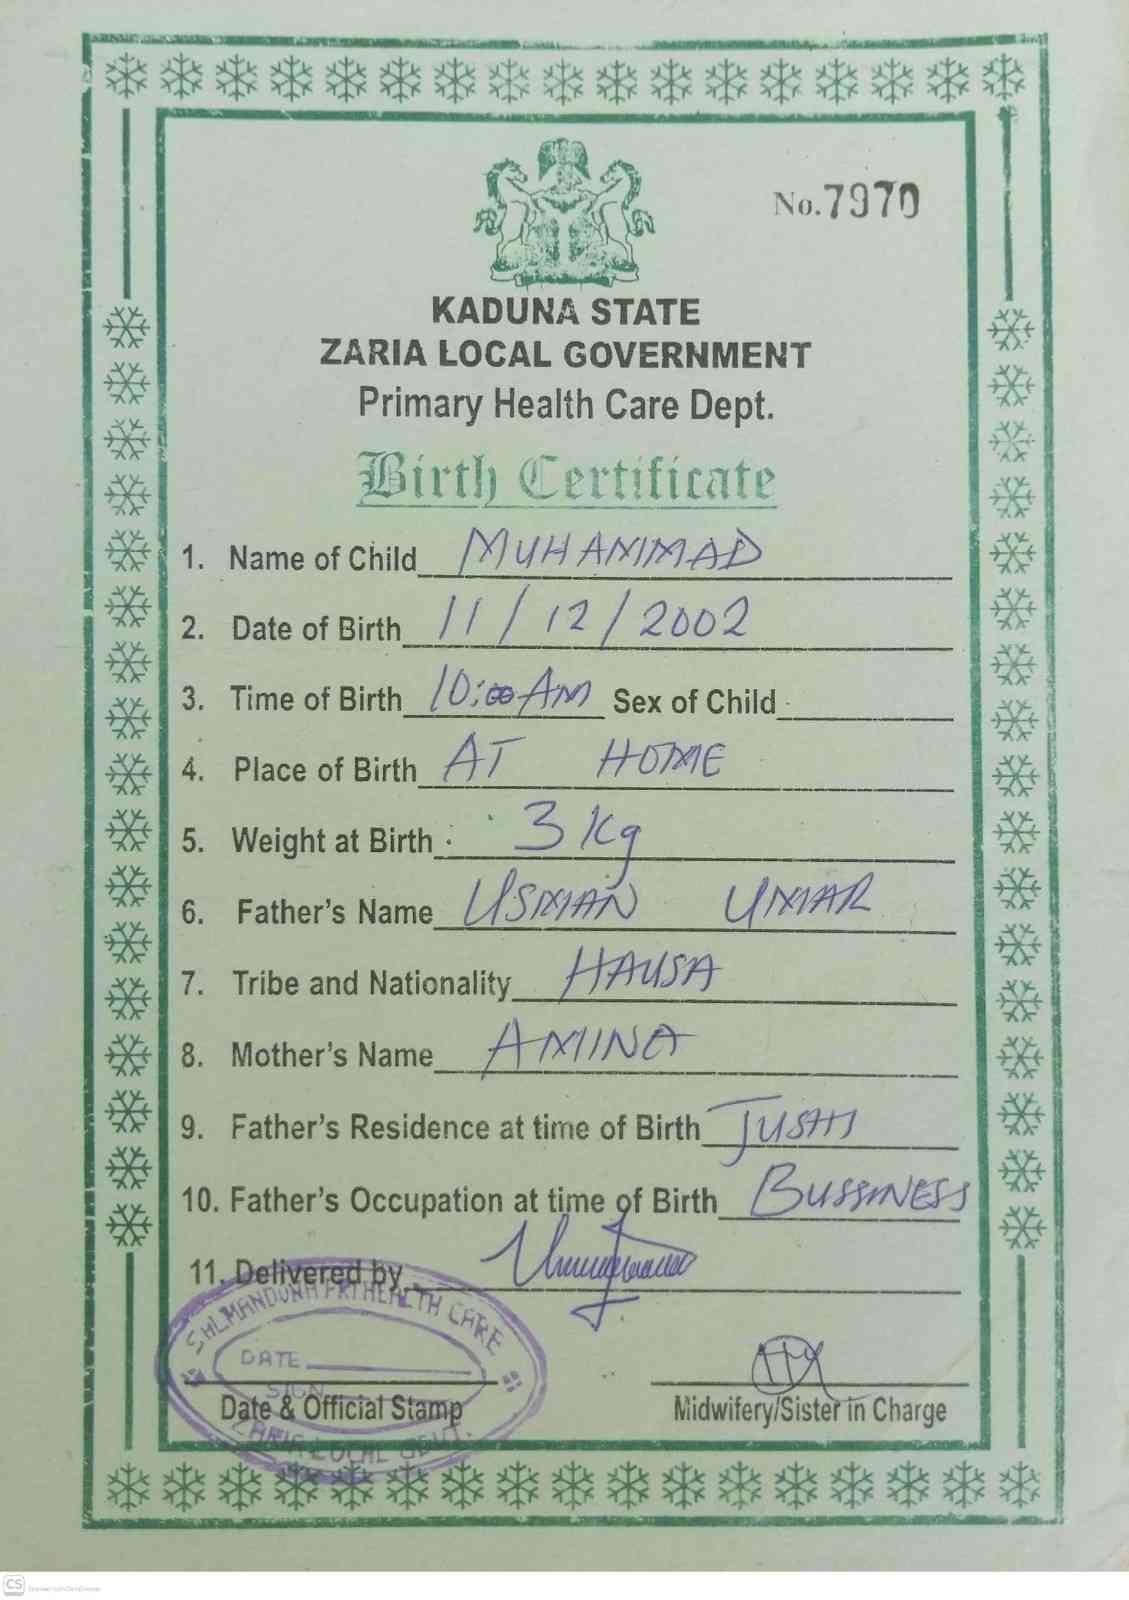 No.7970
KADUNA STATE
ZARIA LOCAL GOVERNMENT
Primary Health Care Dept.
Birth Certificate
1. Name of Child MUHAMMAD
2. Date of Birth 11/12/2002
3. Time of Birth 10:00 AM Sex of Child
4. Place of Birth AT HOME
5. Weight at Birth 3 Kg
6. Father's Name USMAN UMAR
7. Tribe and Nationality HAUSA
8. Mother's Name AMINA
9. Father's Residence at time of Birth JUSHI
10. Father's Occupation at time of Birth BUSSINESS
11. Delivered by
HEALTH CARE
DATE
SIGN
Date & Official Stamp
Midwifery/Sister in Charge
ZARIA LOCAL GOVT.
CS